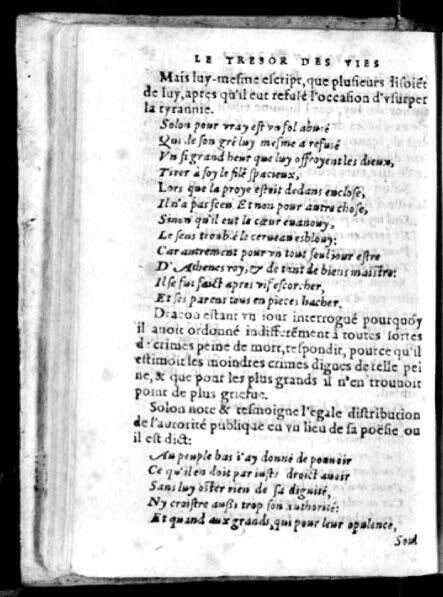 LE TRESOR DES VIES
Mais luy-mesme escript, que plusieurs disoiẽt
de luy, apres qu'il eut refusé l'occasion d'vsurper
la tyrannie.
Solon pour vray est vn fol abusé
Qui de son gré luy mesme a refusé
Vn si grand heur que luy offroyent les dieux,
Tirer à soy le filé spacieux,
Lors que la proye estoit dedans enclose,
Il n'a pas sceu. Et non pour autre chose,
Sinon qu'il eut le cœur euanouy,
Le sens troublé le cerueau esblouy:
Car autrement pour vn tout seul iour estre
D'Athenes roy, & de tant de biens maistre:
Il se fut faict apres vif escorcher,
Et ses parens tous en pieces hacher.
Dracon estant vn iour interrogué pourquoy
il auoit ordonné indifferẽment à toutes sortes
de crimes peine de mort, respondit, pource qu'il
estimoit les moindres crimes dignes de telle pei
ne, & que pour les plus grands il n'en trouuoit
point de plus griefue.
Solon note & tesmoigne l'egale distribution
de l'autorité publique en vn lieu de sa poësie ou
il est dict:
Au peuple bas i'ay donné de pouuoir
Ce qu'il en doit par iuste droict auoir
Sans luy oster rien de sa dignité,
Ny croistre aussi trop son authorité:
Et quand aux grands, qui pour leur opulence,
Sont